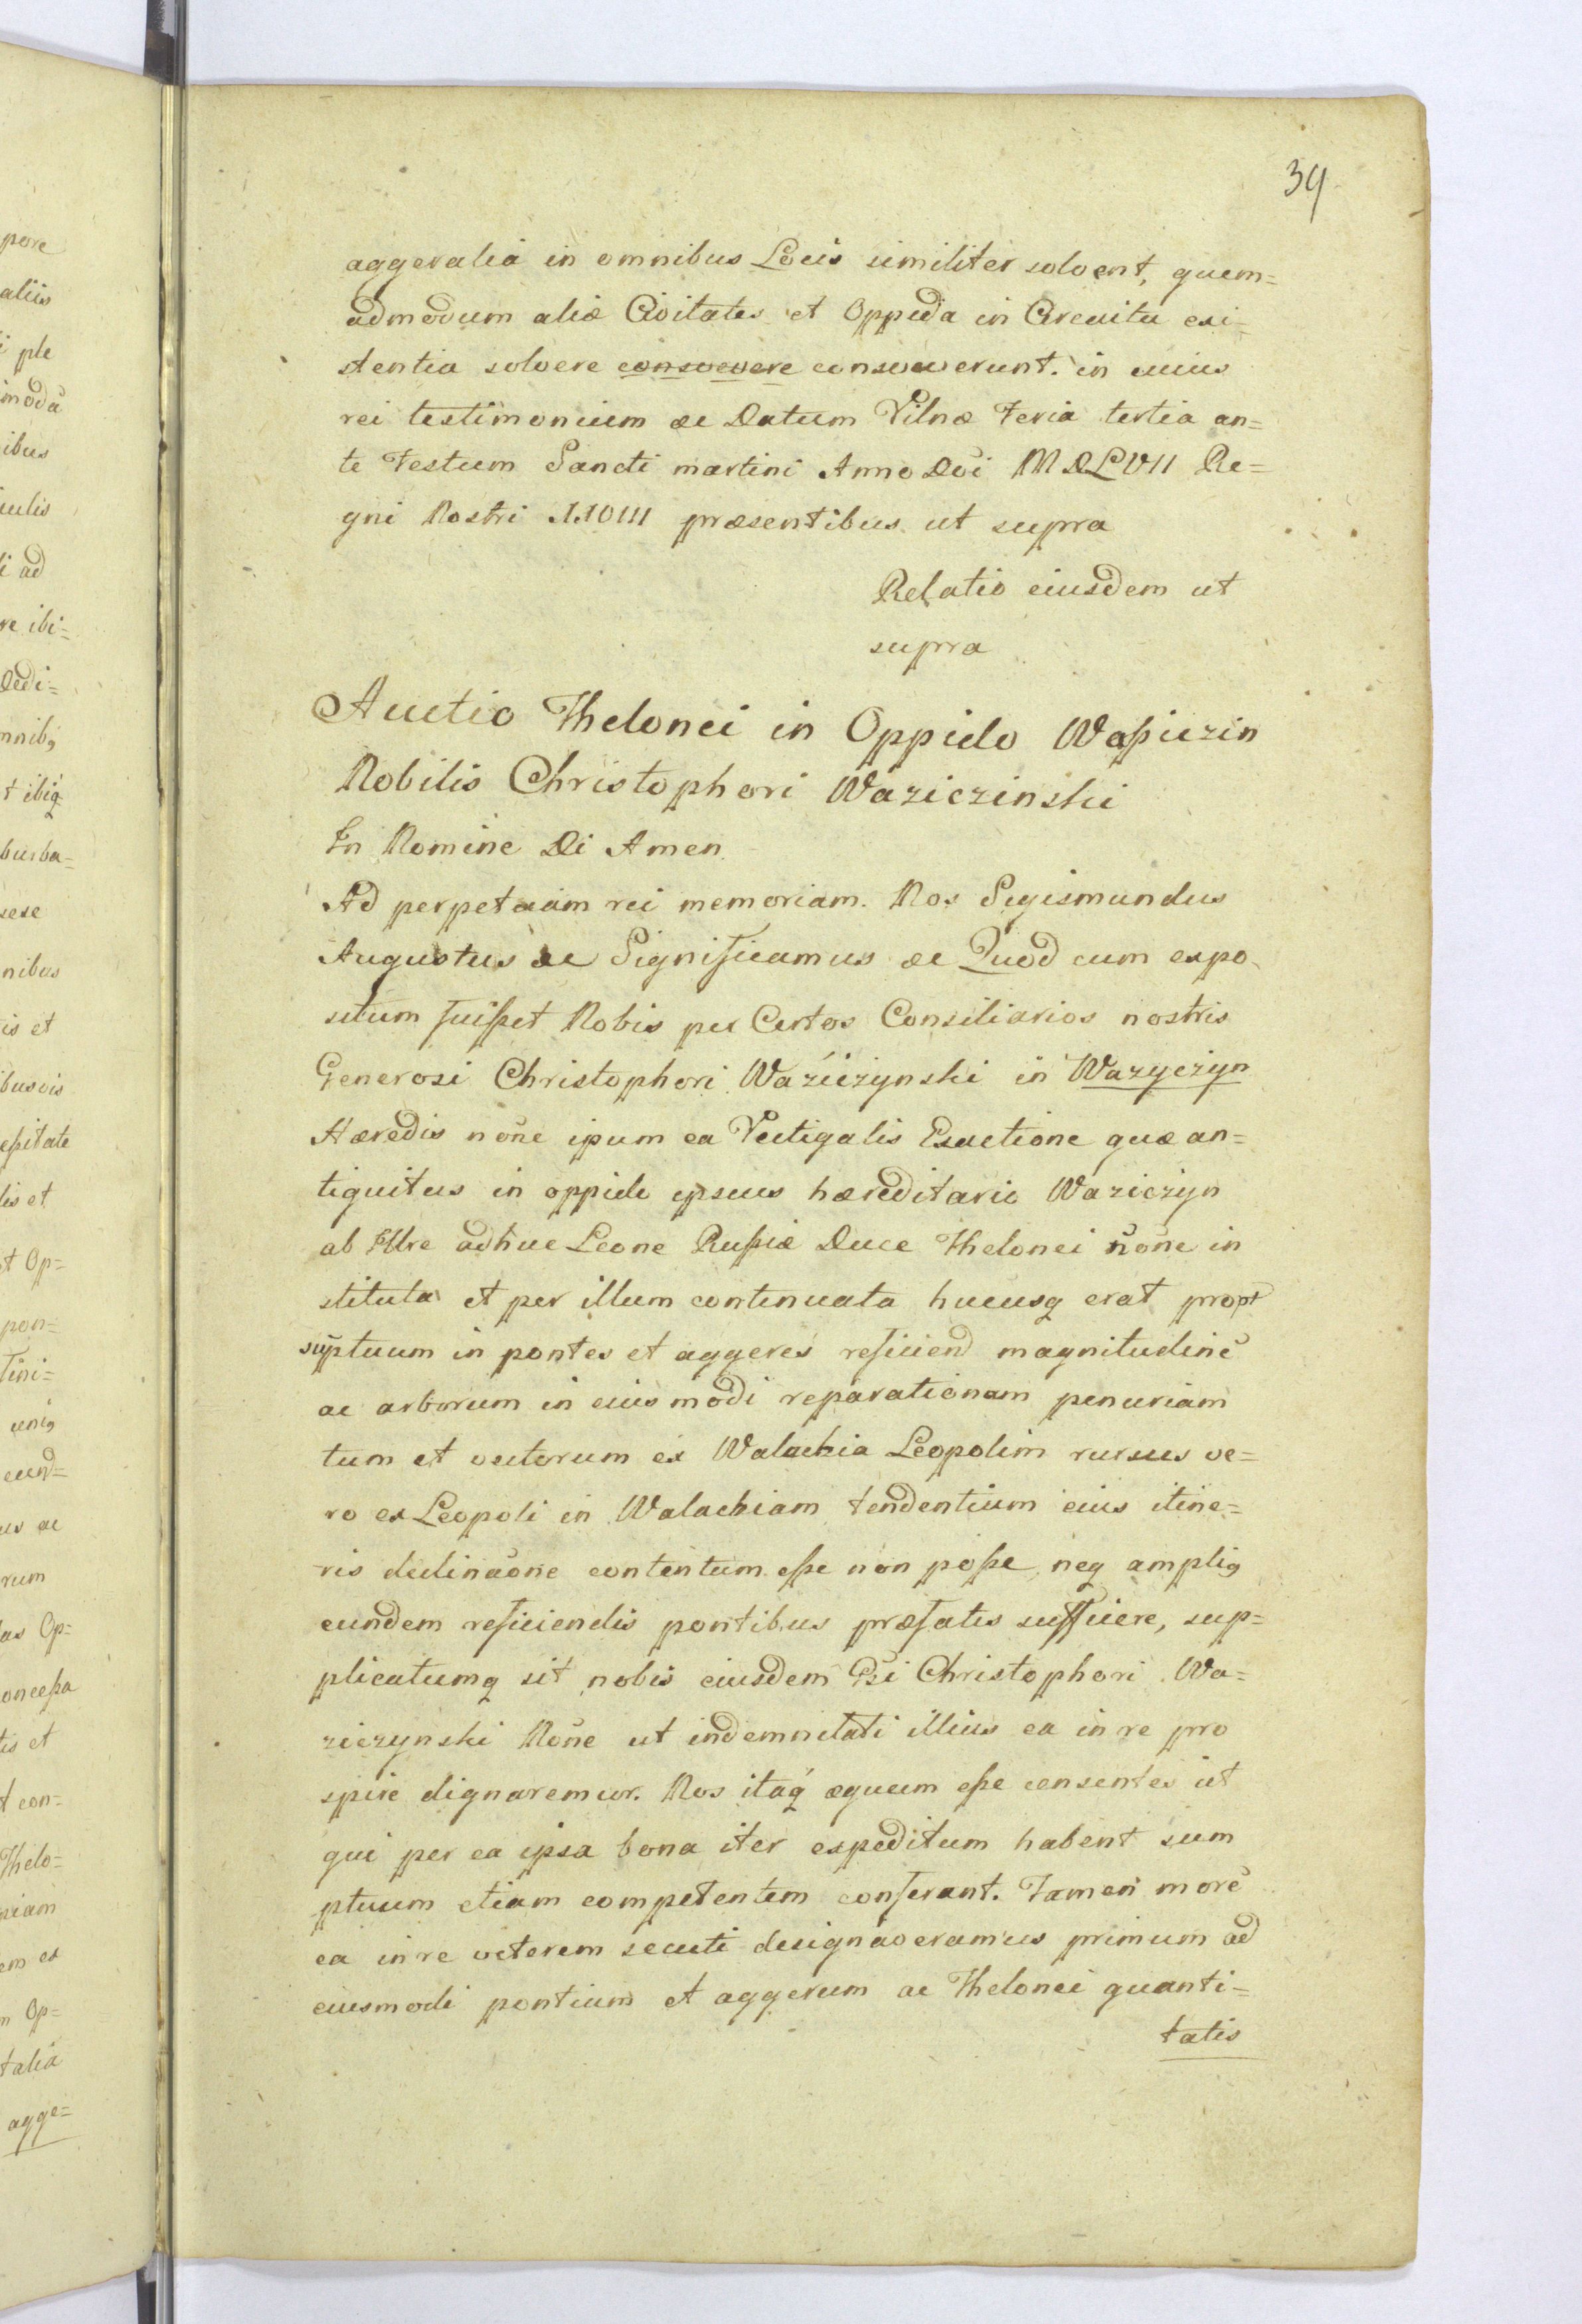 39
aggeralia in omnibus Locis similiter solvent, quem=
admodum aliæ Civitates et Oppida in Circuitu exi=
stentia solvere consuevere consueverunt. in cuius
rei testimonium &c Datum Vilnæ Feria tertia an=
te Festum Sancti martini Anno Dni MDLVII Re=
gni Nostri XXVIII præsentibus ut supra
Relatio eiusdem ut
supra
Auctio Thelonei in Oppido Waßiczin
Nobilis Christophori Waziczinski
In Nomine Di Amen
Ad perpetuam rei memoriam. Nos Sigismundus
Augustus &c Significamus &c Quod cum expo
situm fuißet Nobis per Certos Consiliarios nostris
Generosi Christophori Waziczynski in Wazyczyn
Hæredis no͠ne ipum ea Vectigalis Exactione quæ an=
tiquitus in oppido ipsius hæreditario Waziczyn
ab Illre adhuc Leone Rußiæ Duce Thelonei no͠ne in
stituta et per illum continuata hucusq erat propt
suptuum in pontes et aggeres reficiend magnitudine͠
ac arborum in eiusmodi reparationam penuriam
tum et vectorum ex Walachia Leopolim rursus ve=
ro ex Leopoli in Walachiam tendentium eius itine=
ris declina͠one contentum eße non poße, neq ampli9
eundem reficiendis pontibus præfatis sufficere, sup=
plicatumq sit nobis eiusdem Gsi Christophori Wa=
ziczynski No͠ne ut indemnitati illius ea in re pro
spire dignaremur. Nos itaq́ æquum eße censentes ut
qui per ea ipsa bona iter expeditum habent sum
ptuum etiam competentem conferant. Tamen more͠
ea in re veterem secuti designaveramus primum ad
eiusmodi pontium et aggerum ac Thelonei quanti=
tatis